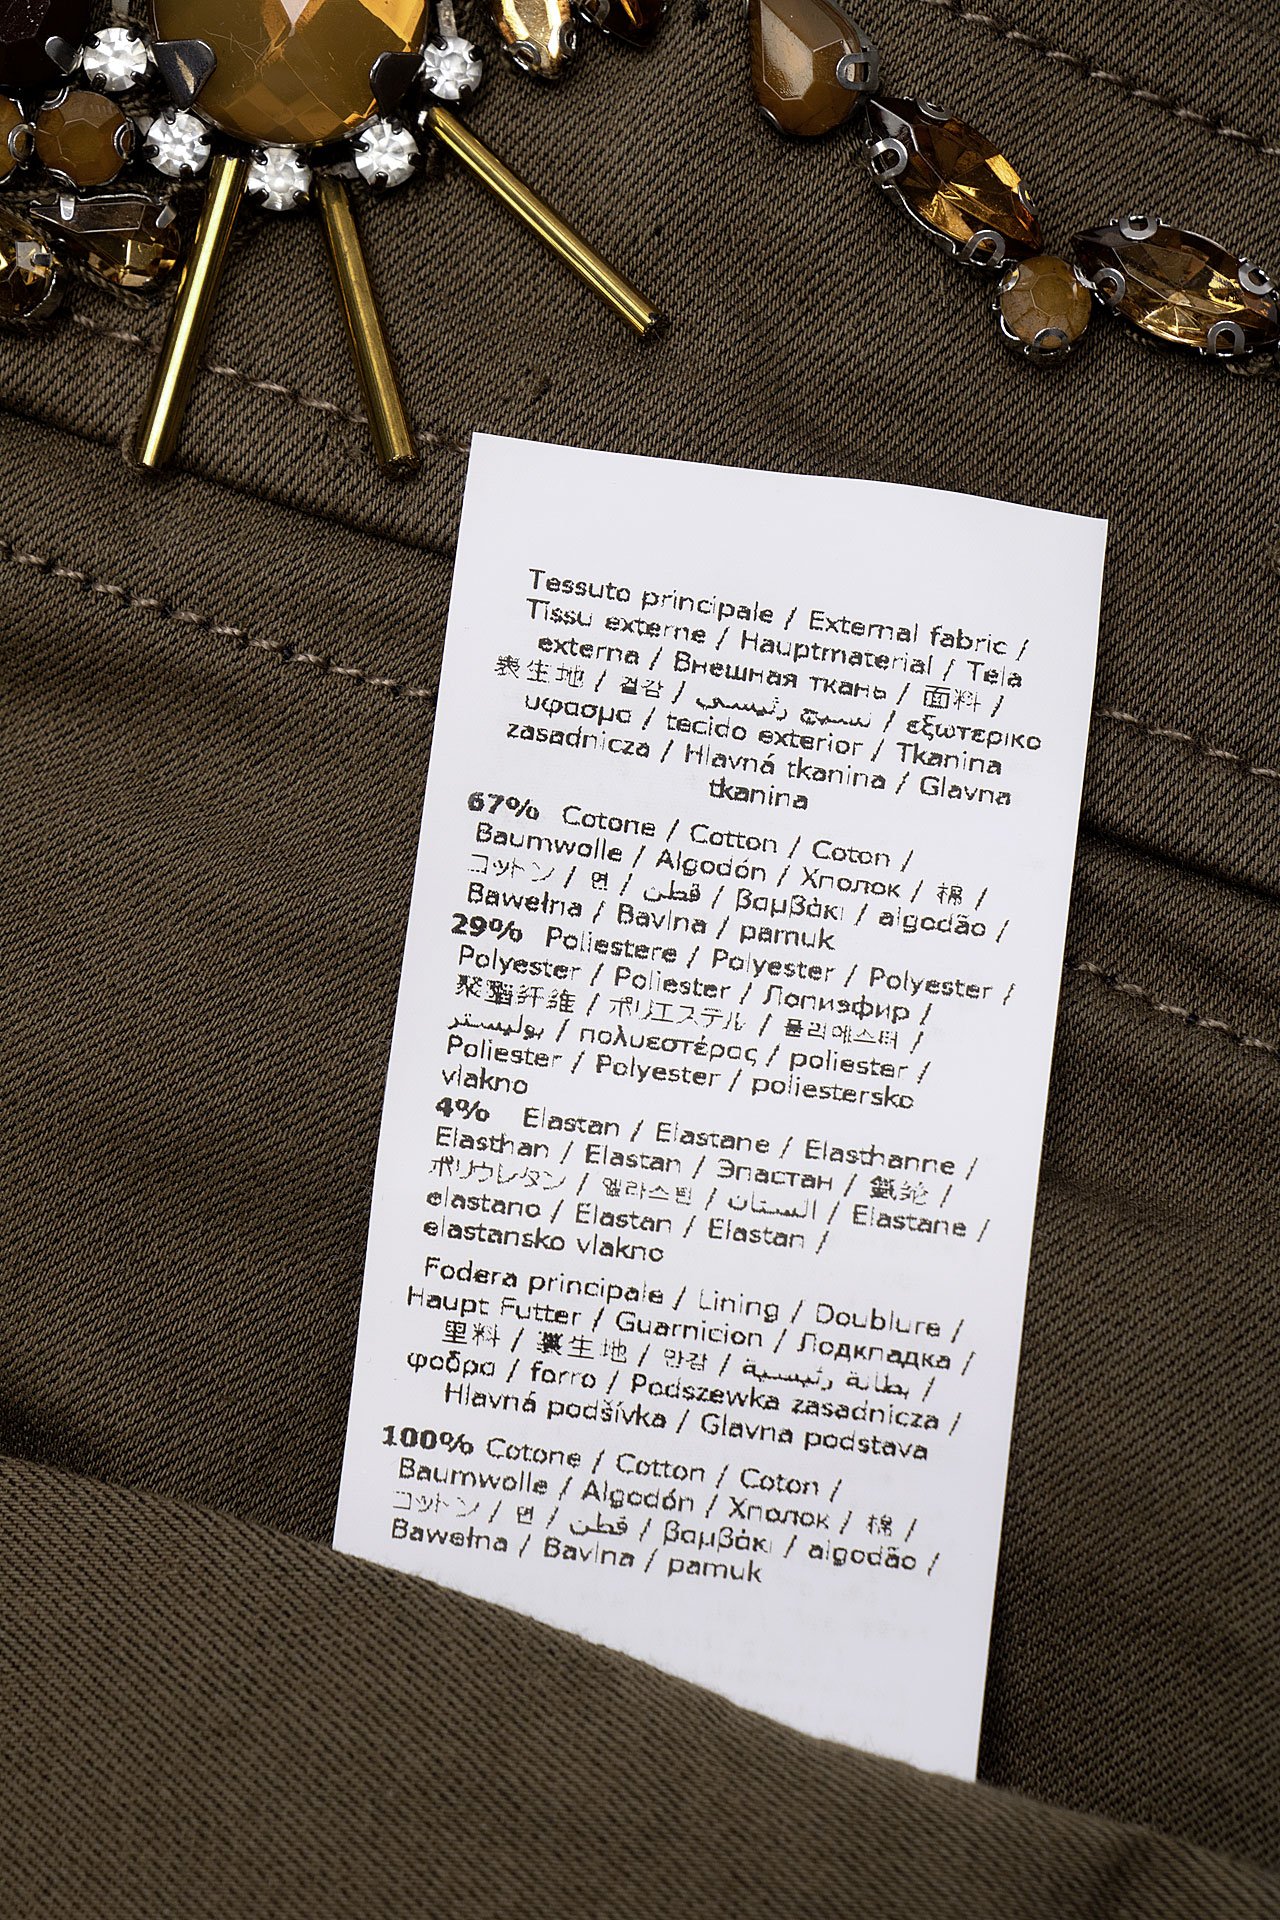 Tessuto principale / External fabric /
Tissu externe / Hauptmaterial / Tela
externa / Внешная ткань / 面料 /
表生地 / 겉감 / نسيج رئيسي / εξωτερικο
υφασμα / tecido exterior / Tkanina
zasadnicza / Hlavná tkanina / Glavna
tkanina
67% Cotone / Cotton / Coton /
Baumwolle / Algodón / Хлопок / 棉 /
コットン / 면 / قطن / βαμβάκι / algodão /
Bawełna / Bavlna / pamuk
29% Poliestere / Polyester / Polyester /
Polyester / Poliester / Полиэфир /
聚酯纤维 / ポリエステル / 폴리에스터 /
بوليستر / πολυεστέρας / poliester /
Poliester / Polyester / poliestersko
vlakno
4% Elastan / Elastane / Elasthanne /
Elasthan / Elastan / Эластан / 氨纶 /
ポリウレタン / 엘라스틴 / الستان / Elastane /
elastano / Elastan / Elastan /
elastansko vlakno
Fodera principale / Lining / Doublure /
Haupt Futter / Guarnicion / Подкладка /
里料 / 裏生地 / 안감 / بطانة رئيسية /
φοδρα / forro / Podszewka zasadnicza /
Hlavná podšívka / Glavna podstava
100% Cotone / Cotton / Coton /
Baumwolle / Algodón / Хлопок / 棉 /
コットン / 면 / قطن / βαμβάκι / algodão /
Bawełna / Bavlna / pamuk